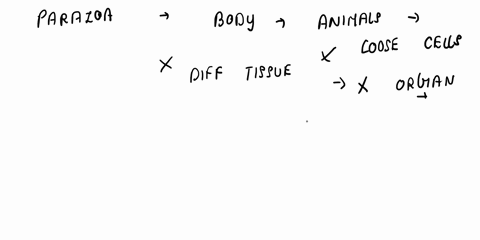 PARAZOA → BODY → ANIMALS →
× DIFF TISSUE ✓ LOOSE CELLS
→ × ORGAN
→